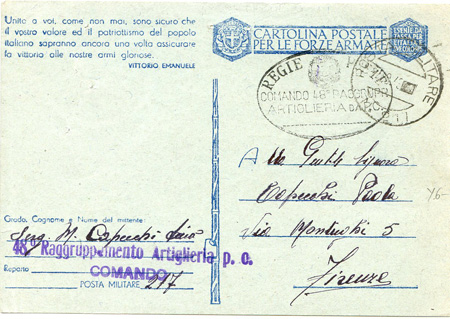 Unito a voi, come non mai, sono sicuro che
il vostro valore ed il patriottismo del popolo
italiano sapranno ancora una volta assicurare
la vittoria alle nostre armi gloriose.
VITTORIO EMANUELE
CARTOLINA POSTALE
PER LE FORZE ARMATE
ESENTE DA
TASSA PER
REGIE
COMANDO 48° RAGGRUPP.
ARTIGLIERIA
MILITARE
Alla Gent. Signora
Capecchi Paola
Via 5
Firenze
Grado, Cognome e Nome del mittente:
Serg. M. Capecchi
48° Raggruppamento Artiglieria p. c.
Reparto
COMANDO
POSTA MILITARE 217